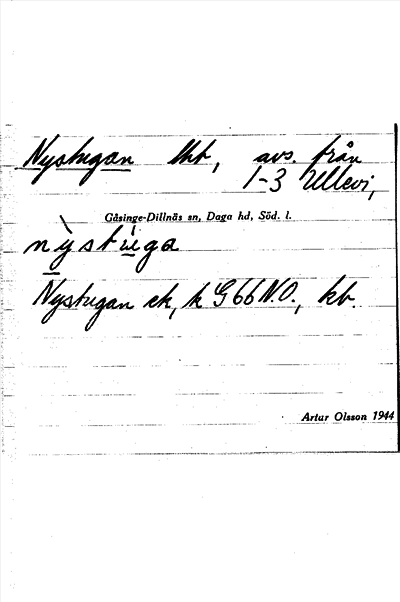 Nystugan lht, avs. från
1-3 Ullevi,
Gåsinge-Dillnäs sn, Daga hd, Söd. l.
nỳstùga
Nystugan ek, k G66 N.O., kb.
Artur Olsson 1944